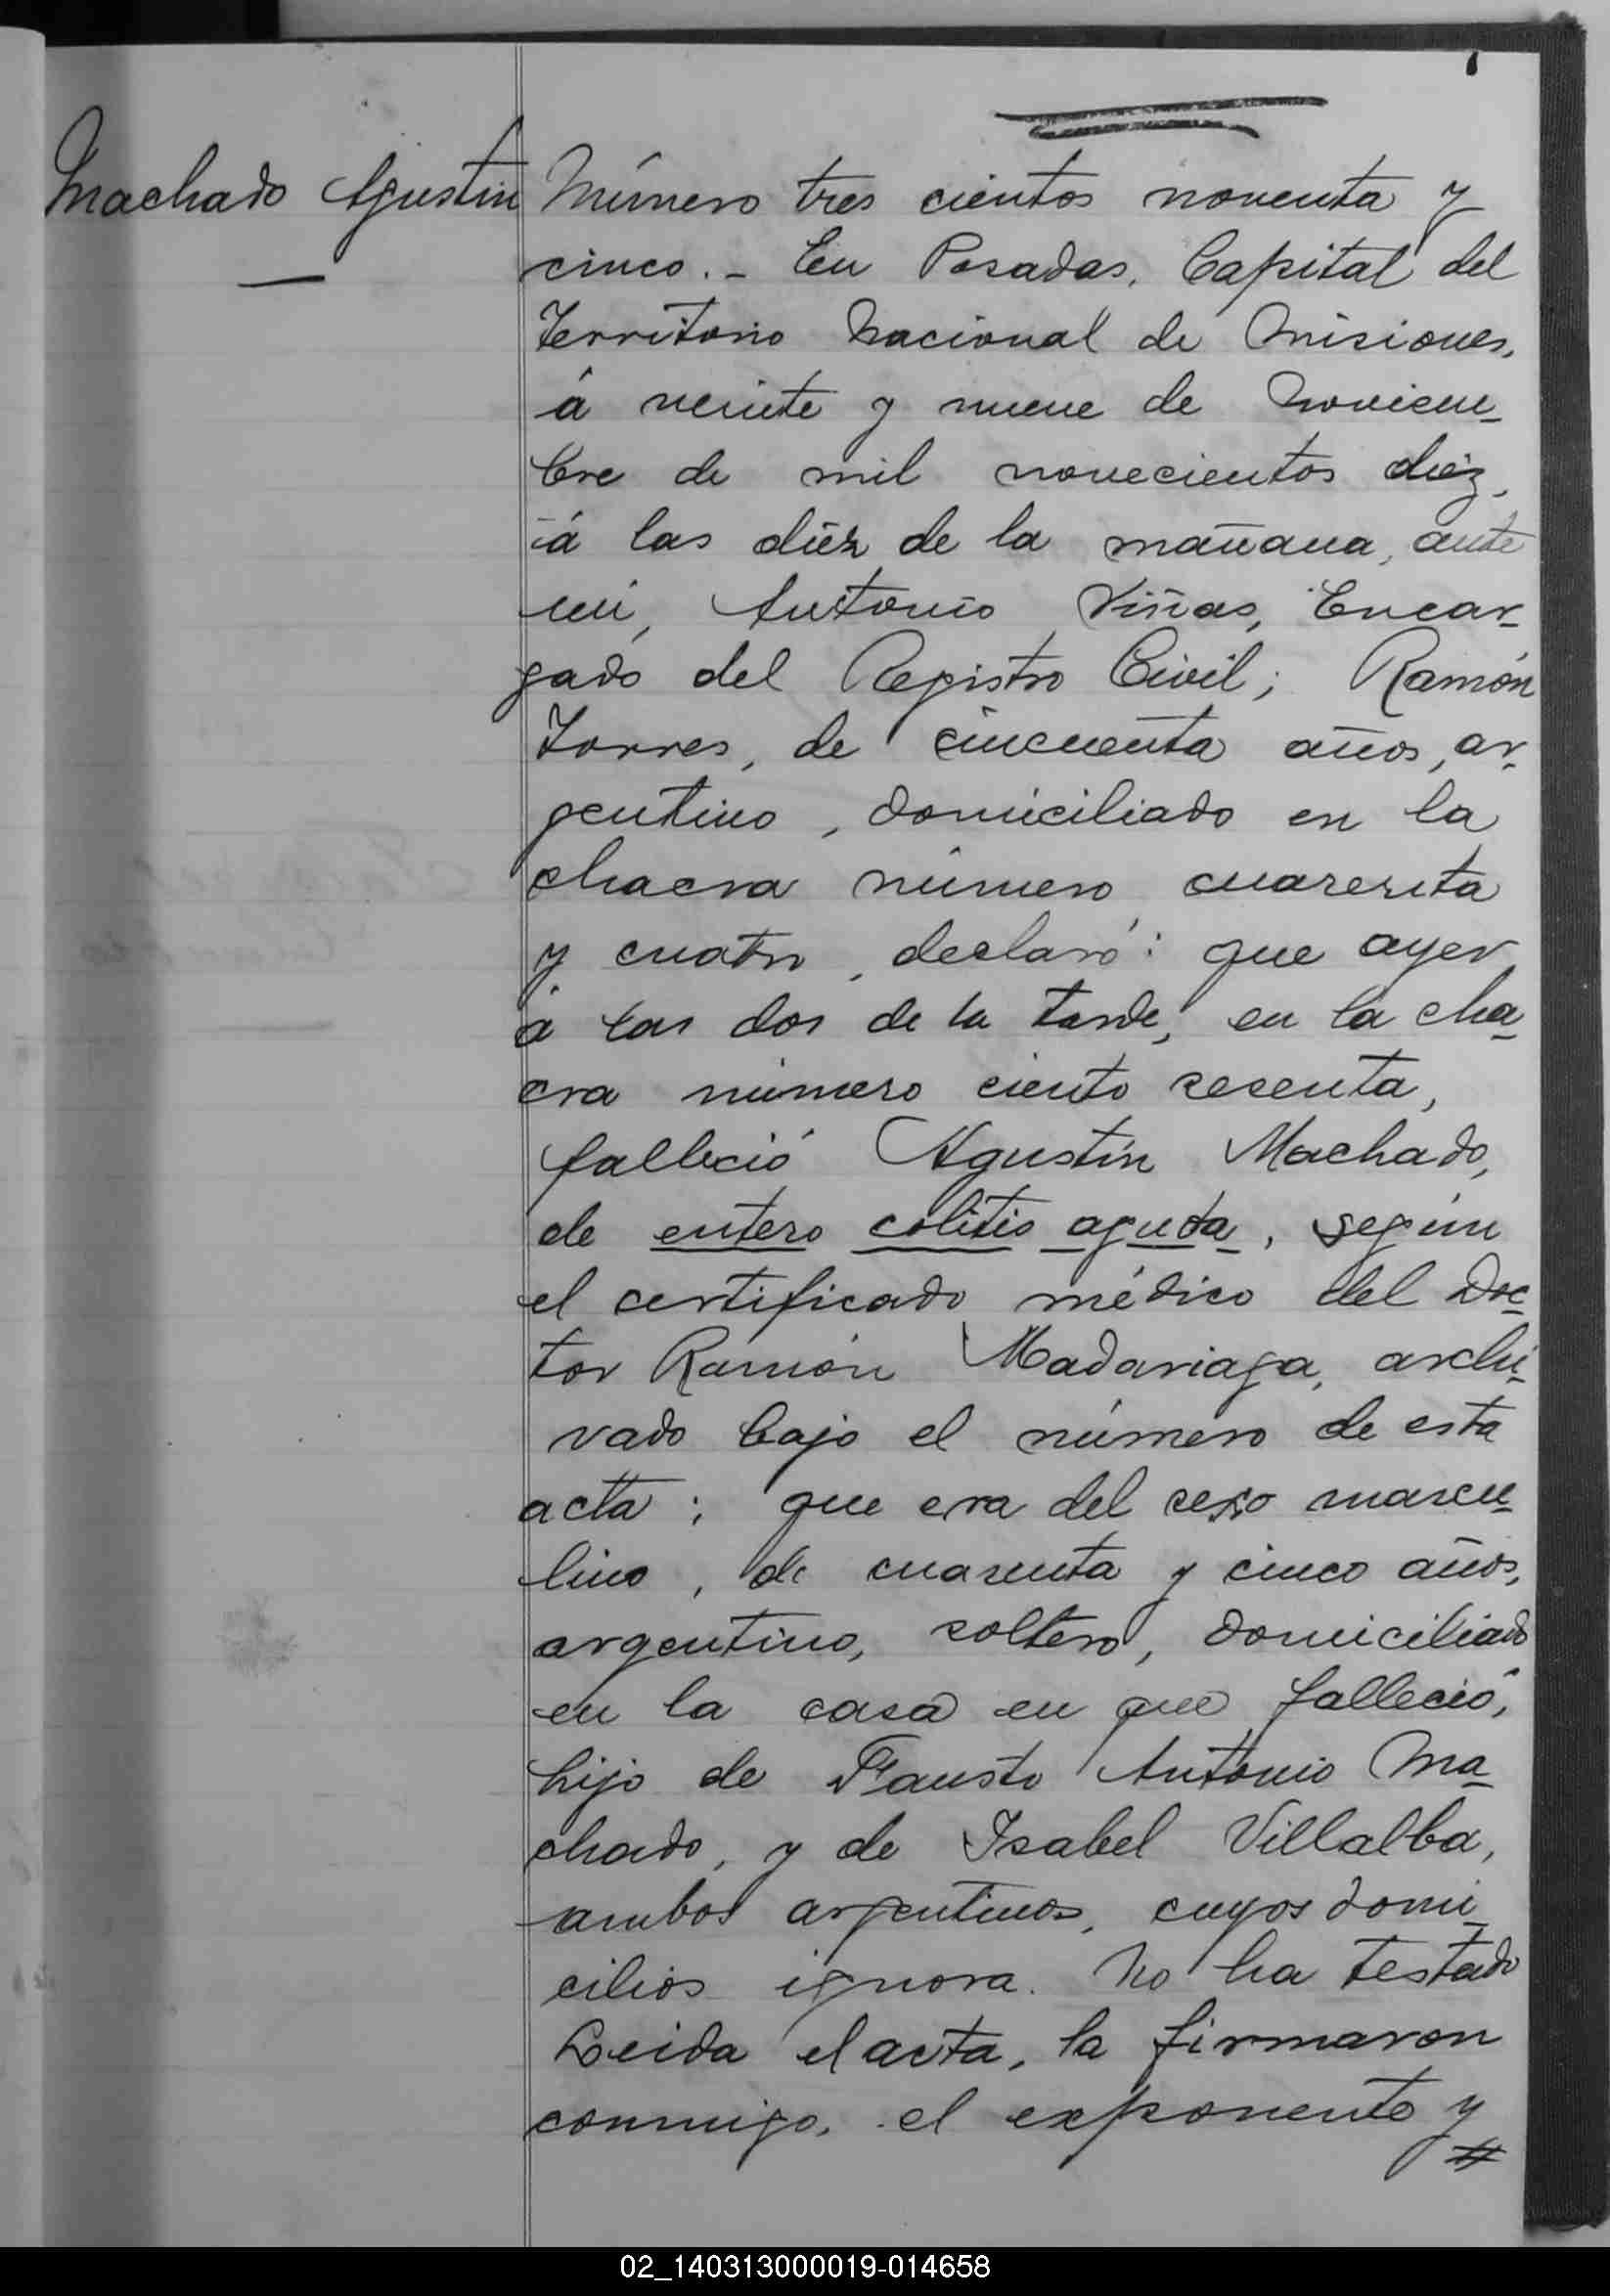 Machado Agustin
Número tres cientos noventa y
cinco.- En Posadas, Capital del
Territorio Nacional de Misiones,
á veinte y nueve de Noviem-
bre de mil novecientos diéz,
á las diéz de la mañana, ante
mi, Antonio Viñas, Encar-
gado del Registro Civil; Ramón
Torres, de cincuenta años, ar-
gentino, domiciliado en la
chacra número cuarenta
y cuatro, declaró: que ayer
á las dos de la tarde, en la cha-
cra número ciento sesenta,
falleció Agustín Machado,
de entero colitis aguda, según
el certificado médico del Doc-
tor Ramón Madariaga, archi-
vado bajo el número de esta
acta; que era del sexo mascu-
lino, de cuarenta y cinco años,
argentino, soltero, domiciliado
en la casa en que falleció,
hijo de Fausto Antonio Ma-
chado, y de Isabel Villalba,
ambos argentinos, cuyos domi-
cilios ignora. No ha testado
Leida el acta, la firmaron
conmigo, el exponente y
#
02_140313000019-014658